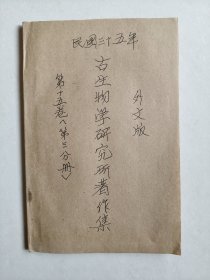 民国二十五年
外文版
古生物学研究所著作集
第十五卷（第三分册）